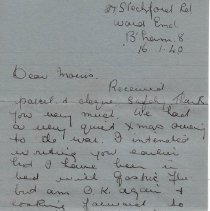 Stechford Rd
Ward End
B'ham. 8
16.1.40
Dear Morris,
Received
parcel & cheque safely Thank
you very much. We had
a very quiet Xmas owing
to the war. I intended
writing you earlier
but I have been in
bed with Gastric Flu
but am O.K. again &
looking forward to